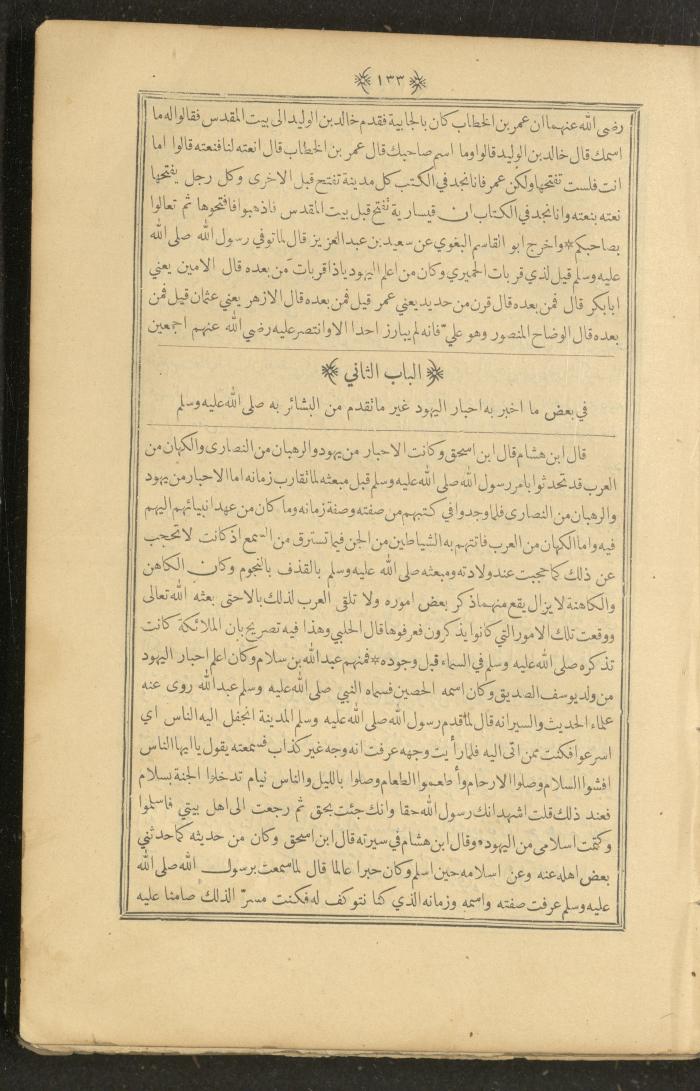 ﴿ ١٣٣ ﴾
رضي الله عنهما ان عمر بن الخطاب كان بالجابية فقدم خالد بن الوليد الى بيت المقدس فقالوا له ما
اسمك قال خالد بن الوليد قالوا وما اسم صاحبك قال عمر بن الخطاب قال انعته لنا فنعته قالوا اما
انت فلست تفتحها ولكن عمر فانا نجد في الكتب كل مدينة تفتح قبل الاخرى وكل رجل يفتحها
نعته بنعته وانا نجد في الكتاب ان قيسارية تُفتح قبل بيت المقدس فاذهبوا فافتحوها ثم تعالوا
بصاحبكم * واخرج ابو القاسم البغوي عن سعيد بن عبد العزيز قال لما توفي رسول الله صلى الله
عليه وسلم قيل لذي قربات الحميري وكان من اعلم اليهود يا ذا قربات مَن بعده قال الامين يعني
ابا بكر قال فمن بعده قال قرن من حديد يعني عمر قيل فمن بعده قال الازهر يعني عثمان قيل فمن
بعده قال الوضاح المنصور وهو عليّ فانه لم يبارز احدا الا وانتصر عليه رضي الله عنهم اجمعين
﴿ الباب الثاني ﴾
في بعض ما اخبر به احبار اليهود غير ما تقدم من البشائر به صلى الله عليه وسلم
قال ابن هشام قال ابن اسحق وكانت الاحبار من يهود والرهبان من النصارى والكهان من
العرب قد تحدثوا بامر رسول الله صلى الله عليه وسلم قبل مبعثه لما تقارب زمانه اما الاحبار من يهود
والرهبان من النصارى فلما وجدوا في كتبهم من صفته وصفة زمانه وما كان من عهد انبيائهم اليهم
فيه واما الكهان من العرب فاتتهم به الشياطين من الجن فيما تسترق من السمع اذ كانت لا تحجب
عن ذلك كما حجبت عند ولادته ومبعثه صلى الله عليه وسلم بالقذف بالنجوم وكان الكاهن
والكاهنة لا يزال يقع منهما ذكر بعض اموره ولا تلقي العرب لذلك بالا حتى بعثه الله تعالى
ووقعت تلك الامور التي كانوا يذكرون فعرفوها قال الحلبي وهذا فيه تصريح بان الملائكة كانت
تذكره صلى الله عليه وسلم في السماء قبل وجوده * فمنهم عبد الله بن سلام وكان اعلم احبار اليهود
من ولد يوسف الصديق وكان اسمه الحصين فسماه النبي صلى الله عليه وسلم عبد الله روى عنه
علماء الحديث والسير انه قال لما قدم رسول الله صلى الله عليه وسلم المدينة انجفل اليه الناس اي
اسرعوا فكنت ممن اتى اليه فلما رأيت وجهه عرفت انه وجه غير كذاب فسمعته يقول يا ايها الناس
افشوا السلام وصلوا الارحام وأطعموا الطعام وصلوا بالليل والناس نيام تدخلوا الجنة بسلام
فعند ذلك قلت اشهد انك رسول الله حقا وانك جئت بحق ثم رجعت الى اهل بيتي فاسلموا
وكتمت اسلامي من اليهود * وقال ابن هشام في سيرته قال ابن اسحق وكان من حديثه كما حدثني
بعض اهله عنه وعن اسلامه حين اسلم وكان حبرا عالما قال لما سمعت برسول الله صلى الله
عليه وسلم عرفت صفته واسمه وزمانه الذي كنا نتوكف له فكنت مسرّا لذلك صامتا عليه